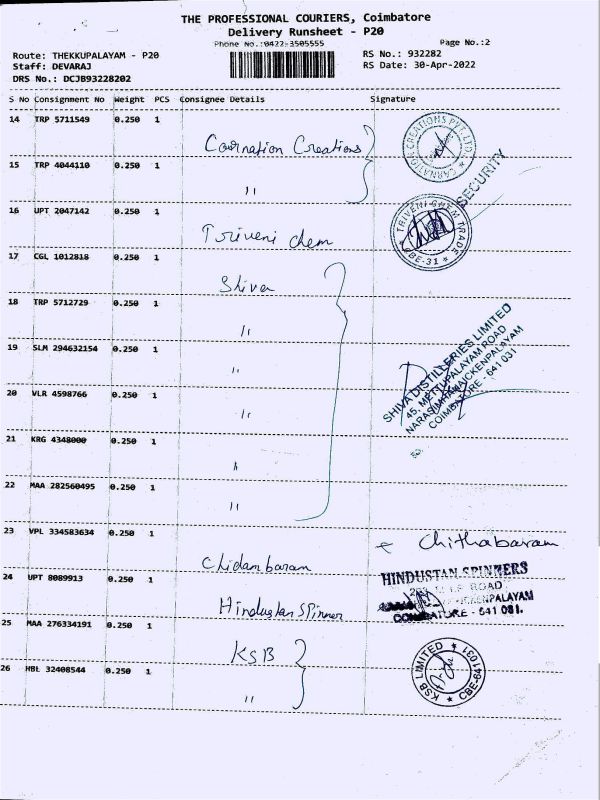 THE PROFESSIONAL COURIERS, Coimbatore
Delivery Runsheet - P20
Phone No.:0422-3505555
Page No.:2
Route: THEKKUPALAYAM - P20
Staff: DEVARAJ
DRS No.: DCJB93228202
RS No.: 932282
RS Date: 30-Apr-2022
S No Consignment No Weight PCS Consignee Details Signature
14 TRP 5711549 0.250 1
Coornation Creations
CARNATION CREATIONS PVT. LTD.
15 TRP 4044110 0.250 1
"
SECURITY
16 UPT 2047142 0.250 1
Triveni chem
TRIVENI CHEM TRADE
* CBE-31 *
17 CGL 1012818 0.250 1
Shiva
18 TRP 5712729 0.250 1
"
SHIVA DISTILLERIES LIMITED
45, METTUPALAYAM ROAD
NARASIMHANAICKENPALAYAM
COIMBATORE - 641 031
19 SLM 294632154 0.250 1
"
20 VLR 4598766 0.250 1
"
21 KRG 4348000 0.250 1
"
22 MAA 282560495 0.250 1
"
23 VPL 334583634 0.250 1
Chidambaram
Chithabaram
24 UPT 8089913 0.250 1
Hindustan Spinner
HINDUSTAN SPINNERS
ROAD
COIMBATORE - 641 031.
25 MAA 276334191 0.250 1
KSB
KSB LIMITED
* CBE-641 031 *
26 HBL 32408544 0.250 1
"